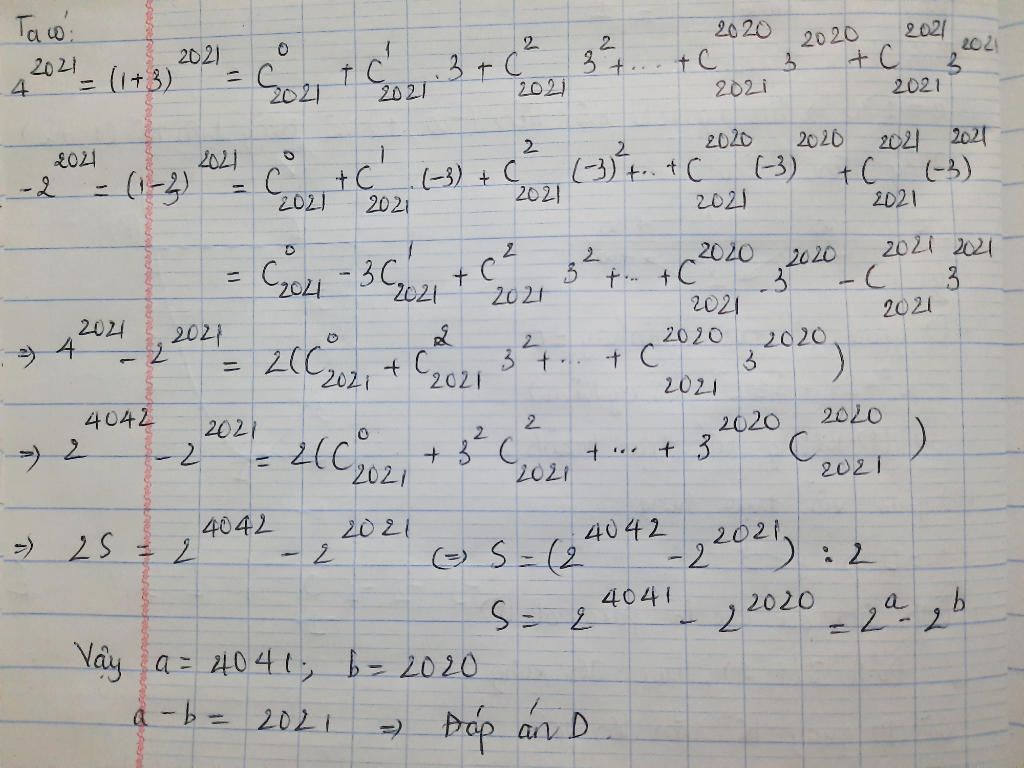 Ta có:
4^2021 = (1+3)^2021 = C^0_2021 + C^1_2021 . 3 + C^2_2021 3^2 + ... + C^2020_2021 3^2020 + C^2021_2021 3^2021
-2^2021 = (1-3)^2021 = C^0_2021 + C^1_2021 . (-3) + C^2_2021 (-3)^2 + .. + C^2020_2021 (-3)^2020 + C^2021_2021 (-3)^2021
= C^0_2021 - 3C^1_2021 + C^2_2021 3^2 + ... + C^2020_2021 . 3^2020 - C^2021_2021 3^2021
=> 4^2021 - 2^2021 = 2(C^0_2021 + C^2_2021 3^2 + ... + C^2020_2021 3^2020)
=> 2^4042 - 2^2021 = 2(C^0_2021 + 3^2 C^2_2021 + ... + 3^2020 C^2020_2021)
=> 2S = 2^4042 - 2^2021 <=> S = (2^4042 - 2^2021) : 2
S = 2^4041 - 2^2020 = 2^a - 2^b
Vậy a = 4041; b = 2020
a - b = 2021 => Đáp án D.